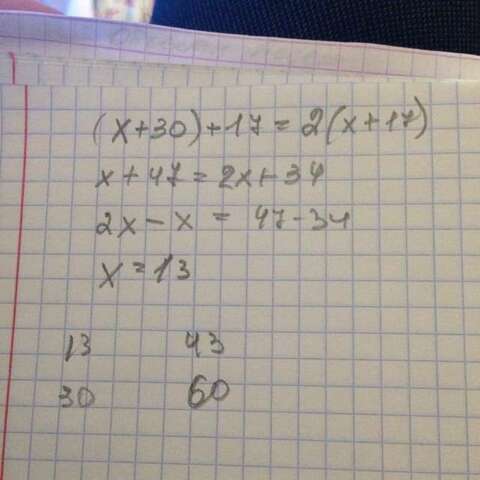 (x+30)+17=2(x+17)
x+47=2x+34
2x-x=47-34
x=13
13 43
30 60